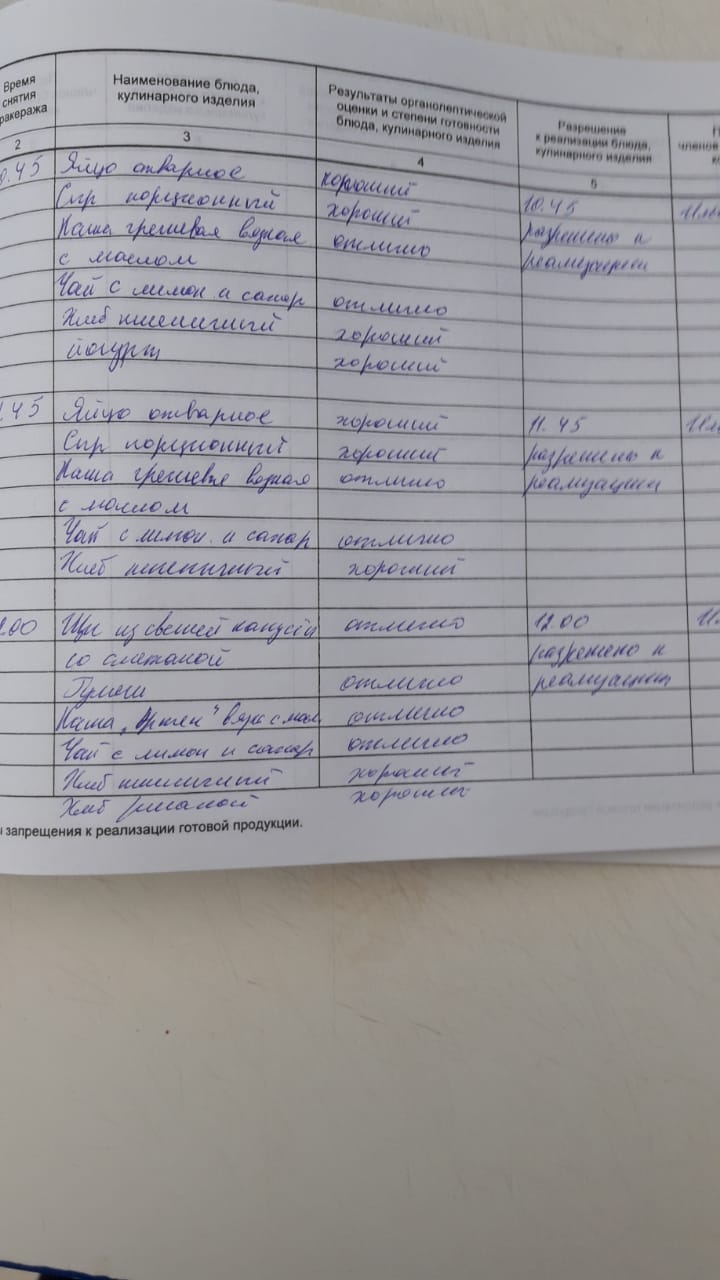 Время снятия бракеража
Наименование блюда, кулинарного изделия
Результаты органолептической оценки и степени готовности блюда, кулинарного изделия
Разрешение к реализации блюда, кулинарного изделия
членов
2 3 4 5
.45 Яйцо отварное хороший
Сыр порционный хороший 10.45
Каша гречевая вязкая отлично разрешено к
с маслом реализации
Чай с лимон. и сахар отлично
Хлеб пшеничный хороший
йогурт хороший
.45 Яйцо отварное хороший 11.45
Сыр порционный хороший разрешено к
Каша гречевая вязкая отлично реализации
с маслом
Чай с лимон. и сахар отлично
Хлеб пшеничный хороший
.00 Щи из свежей капусты отлично 12.00
со сметаной разрешено к
Гуляш отлично реализации
Каша вязк с мал отлично
Чай с лимон и сахар отлично
Хлеб пшеничный хороший
Хлеб ржаной хороший
запрещения к реализации готовой продукции.